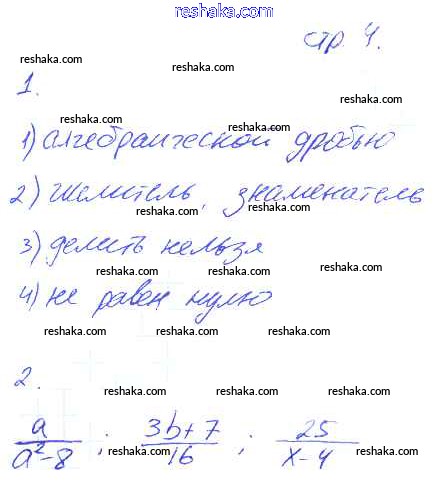 www.reshaka.com
стр. 4.
reshaka.com
reshaka.com
reshaka.com
1.
reshaka.com
reshaka.com
1) алгебраической дробью
reshaka.com
2) числитель, знаменатель
reshaka.com
reshaka.com
3) делить нельзя
reshaka.com
reshaka.com
4) не равен нулю
reshaka.com
reshaka.com
reshaka.com
2.
reshaka.com
reshaka.com
a/(a²-8) ; (3b+7)/16 ; 25/(x-4)
reshaka.com
reshaka.com